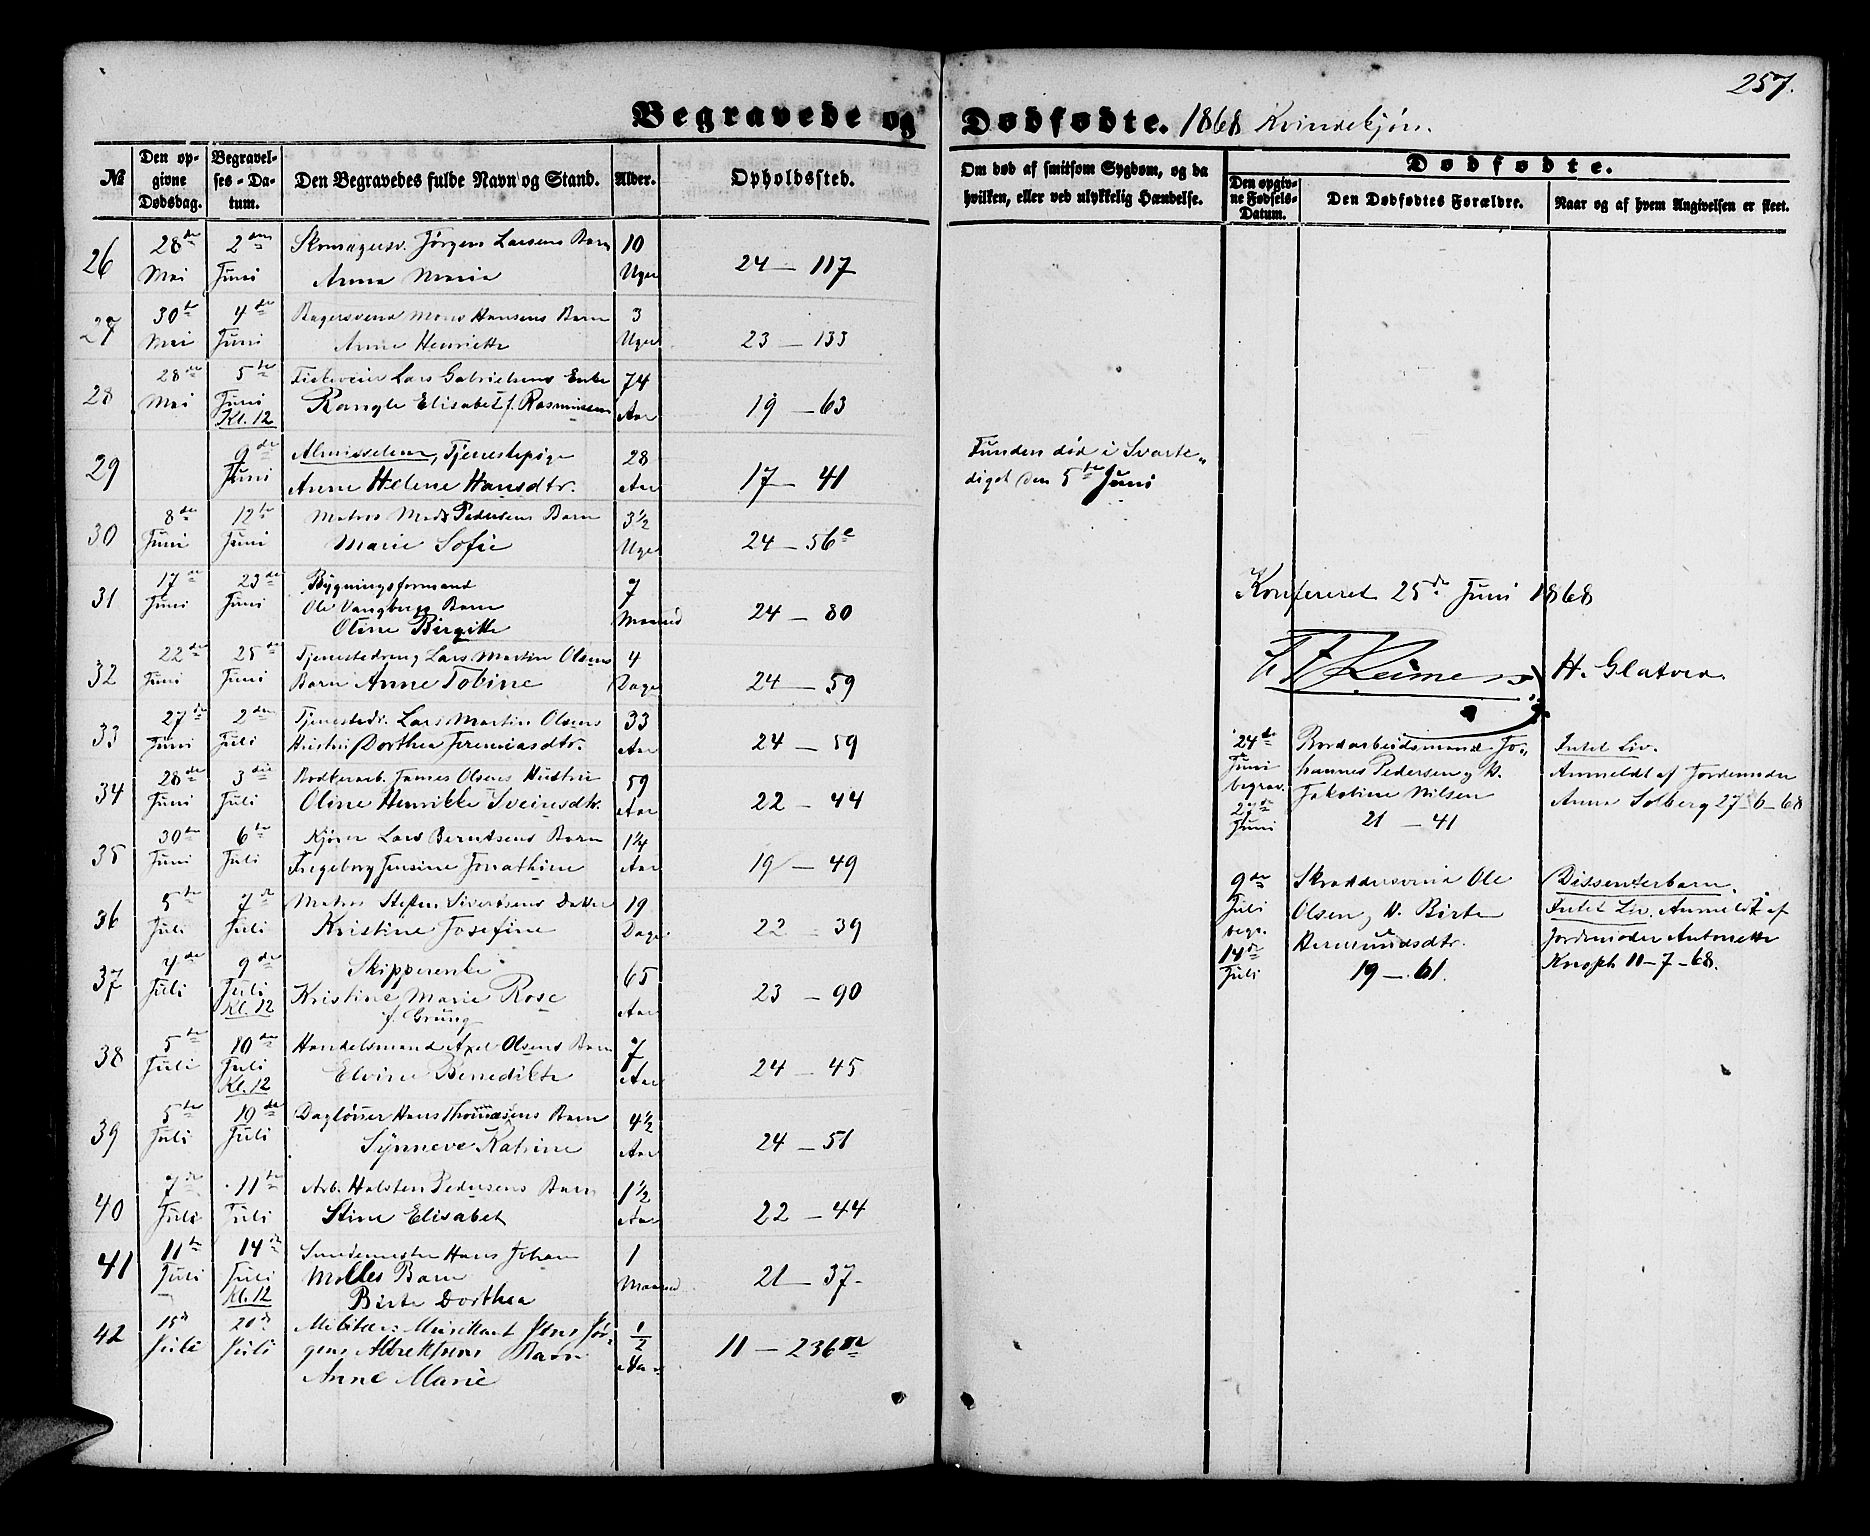 257.
Begravede og Dødfødte. 1868 Kvindekjøn.
№
Den opgivne Dødsdag.
Begravelses-Datum.
Den Begravedes fulde Navn og Stand.
Alder.
Opholdssted.
Om død af smitsom Sygdom, og da hvilken, eller ved ulykkelig Hændelse.
Dødfødte.
Den opgivne Fødsels-Datum.
Den Dødfødtes Forældre.
Naar og af hvem Angivelsen er skeet.
26 28de Mai 2den Juni Skomagersv. Jørgen Larsens Barn 10 Uger 24 — 117
Anna Maria
27 30te Mai 4de Juni Bagersvend Mons Hansens Barn 3 Uger 23 — 133
Anne Henriette
28 28de Mai 5te Juni Kl. 12 Fiskeveier Lars Gabrielsens Enke 74 Aar 19 — 63
Rangle Elisabet f. Rasmussen
29 9de Juni Almisselem, Tjenestepige 28 Aar 17 — 41
Anne Helene Hansdtr.
Funden død i Svarte-
diget den 5te Juni
30 8de Juni 12te Juni Matros Mads Pedersens Barn 3½ Uger 24 — 56e
Marie Sofie
31 17de Juni 23de Juni Bygningsformand 7 Maaned 24 — 80
Ole Vangbergs Barn
Oline Birgitte
32 22de Juni 25de Juni Tjenestedreng Lars Martin Olsens 4 Dage 24 — 59
Barn Anne Tobine
33 27de Juni 2den Juli Tjenestedr. Lars Martin Olsens 33 Aar 24 — 59
Hustru Dorthea Jeremiasdtr.
34 28de Juni 3die Juli Bødkerarb. Tønnes Olsens Hustru 59 Aar 22 — 44
Oline Henrikke Sveinsdtr.
35 30te Juni 6te Juli Kjører Lars Berntsens Barn 1¼ Aar 19 — 49
Ingeborg Jensine Jonathine
36 5te Juli 7de Juli Matros Steffen Siversens Datter 19 Dage 22 — 39
Kristine Josefine
37 4de Juli 9de Juli Kl. 12 Skipperenke 65 Aar 23 — 90
Kristine Marie Rose
f. Grung
38 5te Juli 10de Juli Kl. 12 Handelsmand Axel Olsens Barn 7 Aar 24 — 45
Elvine Benedikte
39 5te Juli 10de Juli Dagløner Hans Thomasens Barn 4½ Aar 24 — 51
Synneve Katrine
40 7de Juli 11te Juli Arb. Halsten Pedersens Barn 1½ Aar 22 — 44
Stine Elisabet
41 11te Juli 14de Juli Kl. 12 Smedemester Hans Johan 1 Maaned 21 — 37
Molles Barn
Birte Dorthea
42 15de Juli 20de Juli Militær: Musikant Jens Jør- ½ Aar 11 — 236
gens Albrektsens Barn
Anne Marie
Konfereret 25de Juni 1868
H. Glatved
24de Juni begrav. 27de Juni
Bordarbeidsmand Jo-
hannes Pedersen og H.
Jakobine Nilsen
21 — 41
Intet Liv.
Anmeldt af Jordemoder
Anna Solberg 27-6-68
9de Juli begr. 14de Juli
Skræddersvend Ole
Olsen og H. Birte
Hermundsdtr.
19 — 61.
Dissenterbarn.
Intet Liv. Anmeldt af
Jordemoder Antonette
Knoph 11-7-68.